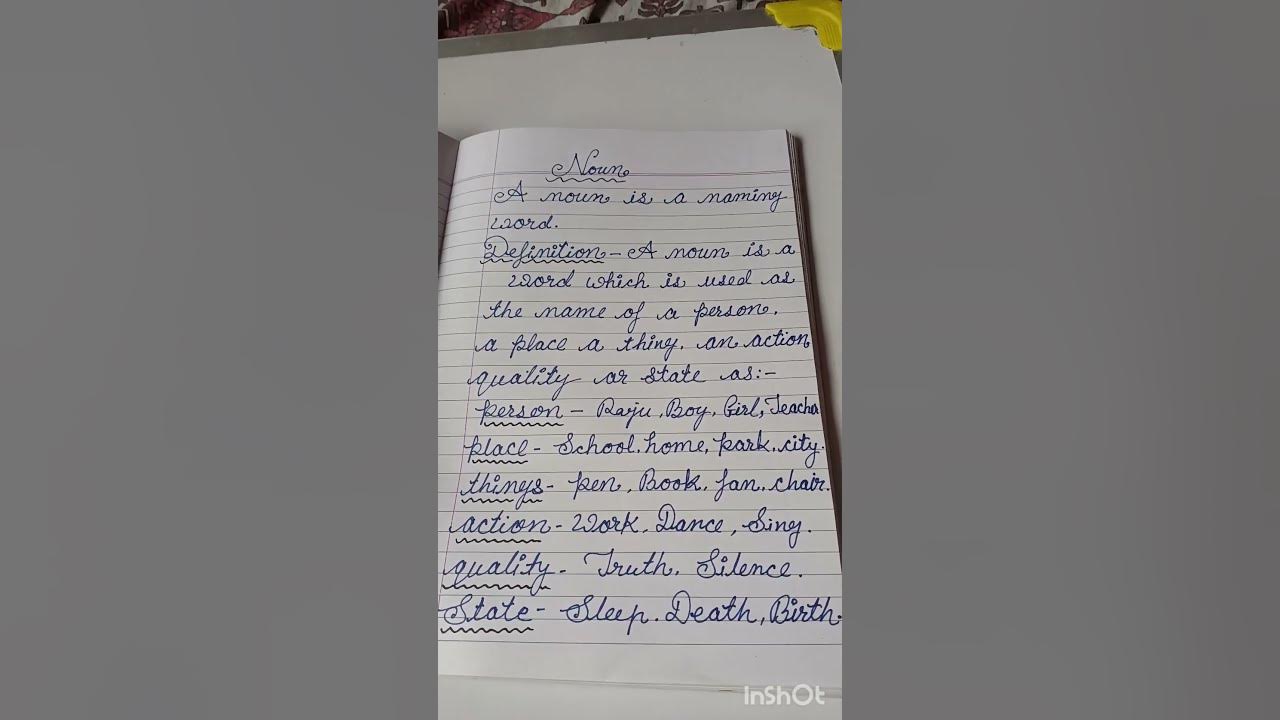 Noun
A noun is a naming
word.
Definition - A noun is a
word which is used as
the name of a person,
a place a thing. an action
quality or state as:-
person - Raju, Boy, Girl, Teacher
place - School, home, park, city.
things - pen, Book, fan, chair.
action - Work, Dance, Sing.
quality - Truth, Silence.
State - Sleep. Death, Birth.
InShOt